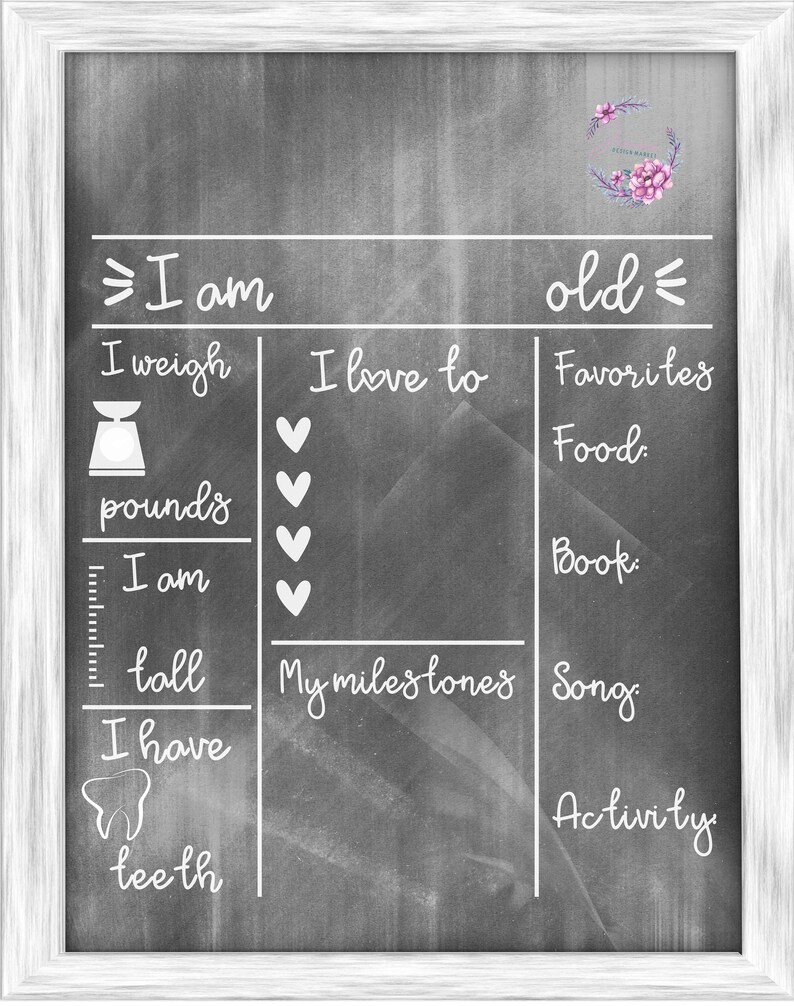 DESIGN MARKET
I am old
I weigh
pounds
I am
tall
I have
teeth
I love to
My milestones
Favorites
Food:
Book:
Song:
Activity: